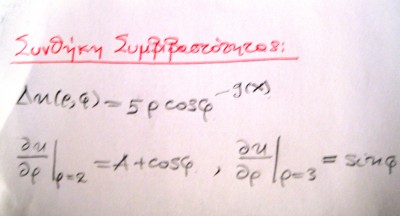 Συνθήκη Συμβιβαστότητας:
Δu(ρ,φ) = 5ρcosφ -g(x)
∂u/∂ρ|ρ=2 = A+cosφ , ∂u/∂ρ|ρ=3 = sinφ